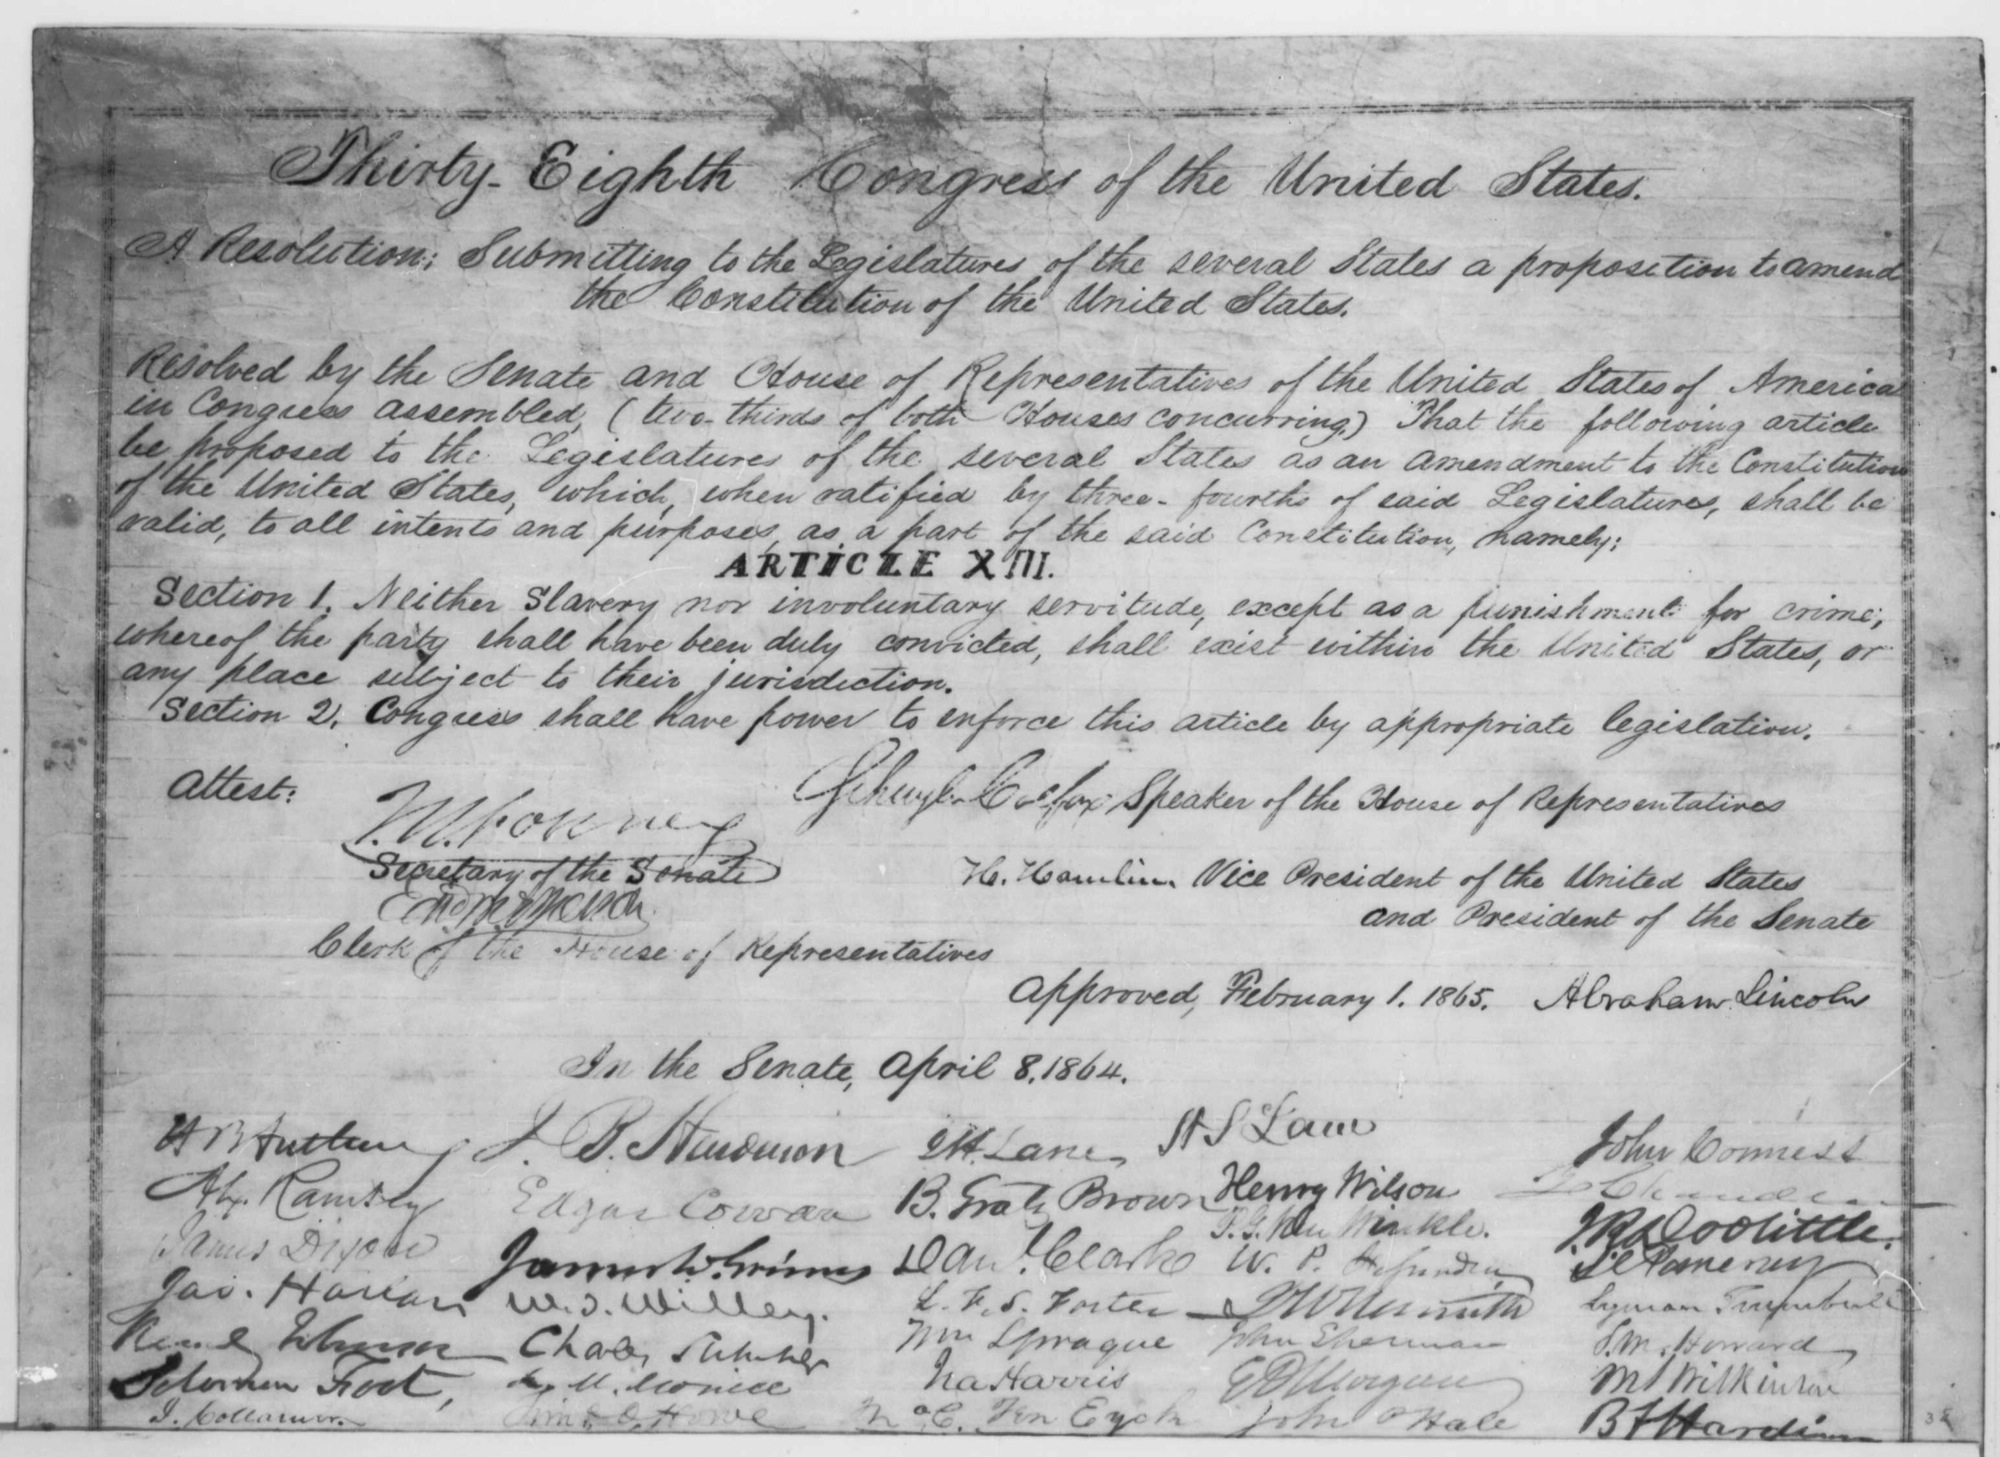 Thirty-Eighth Congress of the United States.
A Resolution; Submitting to the Legislatures of the several States a proposition to amend
the Constitution of the United States.
Resolved by the Senate and House of Representatives of the United States of America
in Congress assembled, (two-thirds of both Houses concurring,) That the following article
be proposed to the Legislatures of the several States as an amendment to the Constitution
of the United States, which, when ratified by three-fourths of said Legislatures, shall be
valid, to all intents and purposes, as a part of the said Constitution, namely:
ARTICLE XIII.
Section 1. Neither Slavery nor involuntary servitude, except as a punishment for crime,
whereof the party shall have been duly convicted, shall exist within the United States, or
any place subject to their jurisdiction.
Section 2. Congress shall have power to enforce this article by appropriate legislation.
Attest:
Schuyler Colfax Speaker of the House of Representatives
J.W. Forney
Secretary of the Senate
H. Hamlin Vice President of the United States
and President of the Senate
Clerk of the House of Representatives
Approved, February 1. 1865. Abraham Lincoln
In the Senate, April 8. 1864.
J. B. Henderson J H Lane H S Lane John Conness
Alex. Ramsey Edgar Cowan B. Gratz Brown Henry Wilson
James Dixon P. G. Van Winkle. J. R. Doolittle.
Jas. Harlan James W. Grimes Dan. Clark W. P. Fessenden S. C. Pomeroy
W. T. Willey. L. F. S. Foster J W Nesmith Lyman Trumbull
Charles Sumner Wm Sprague John Sherman J. M. Howard
Solomon Foot, Ira Harris E D Morgan M S Wilkinson
J. Collamer. Timo. O. Howe Ten Eyck John P Hale B F Harding